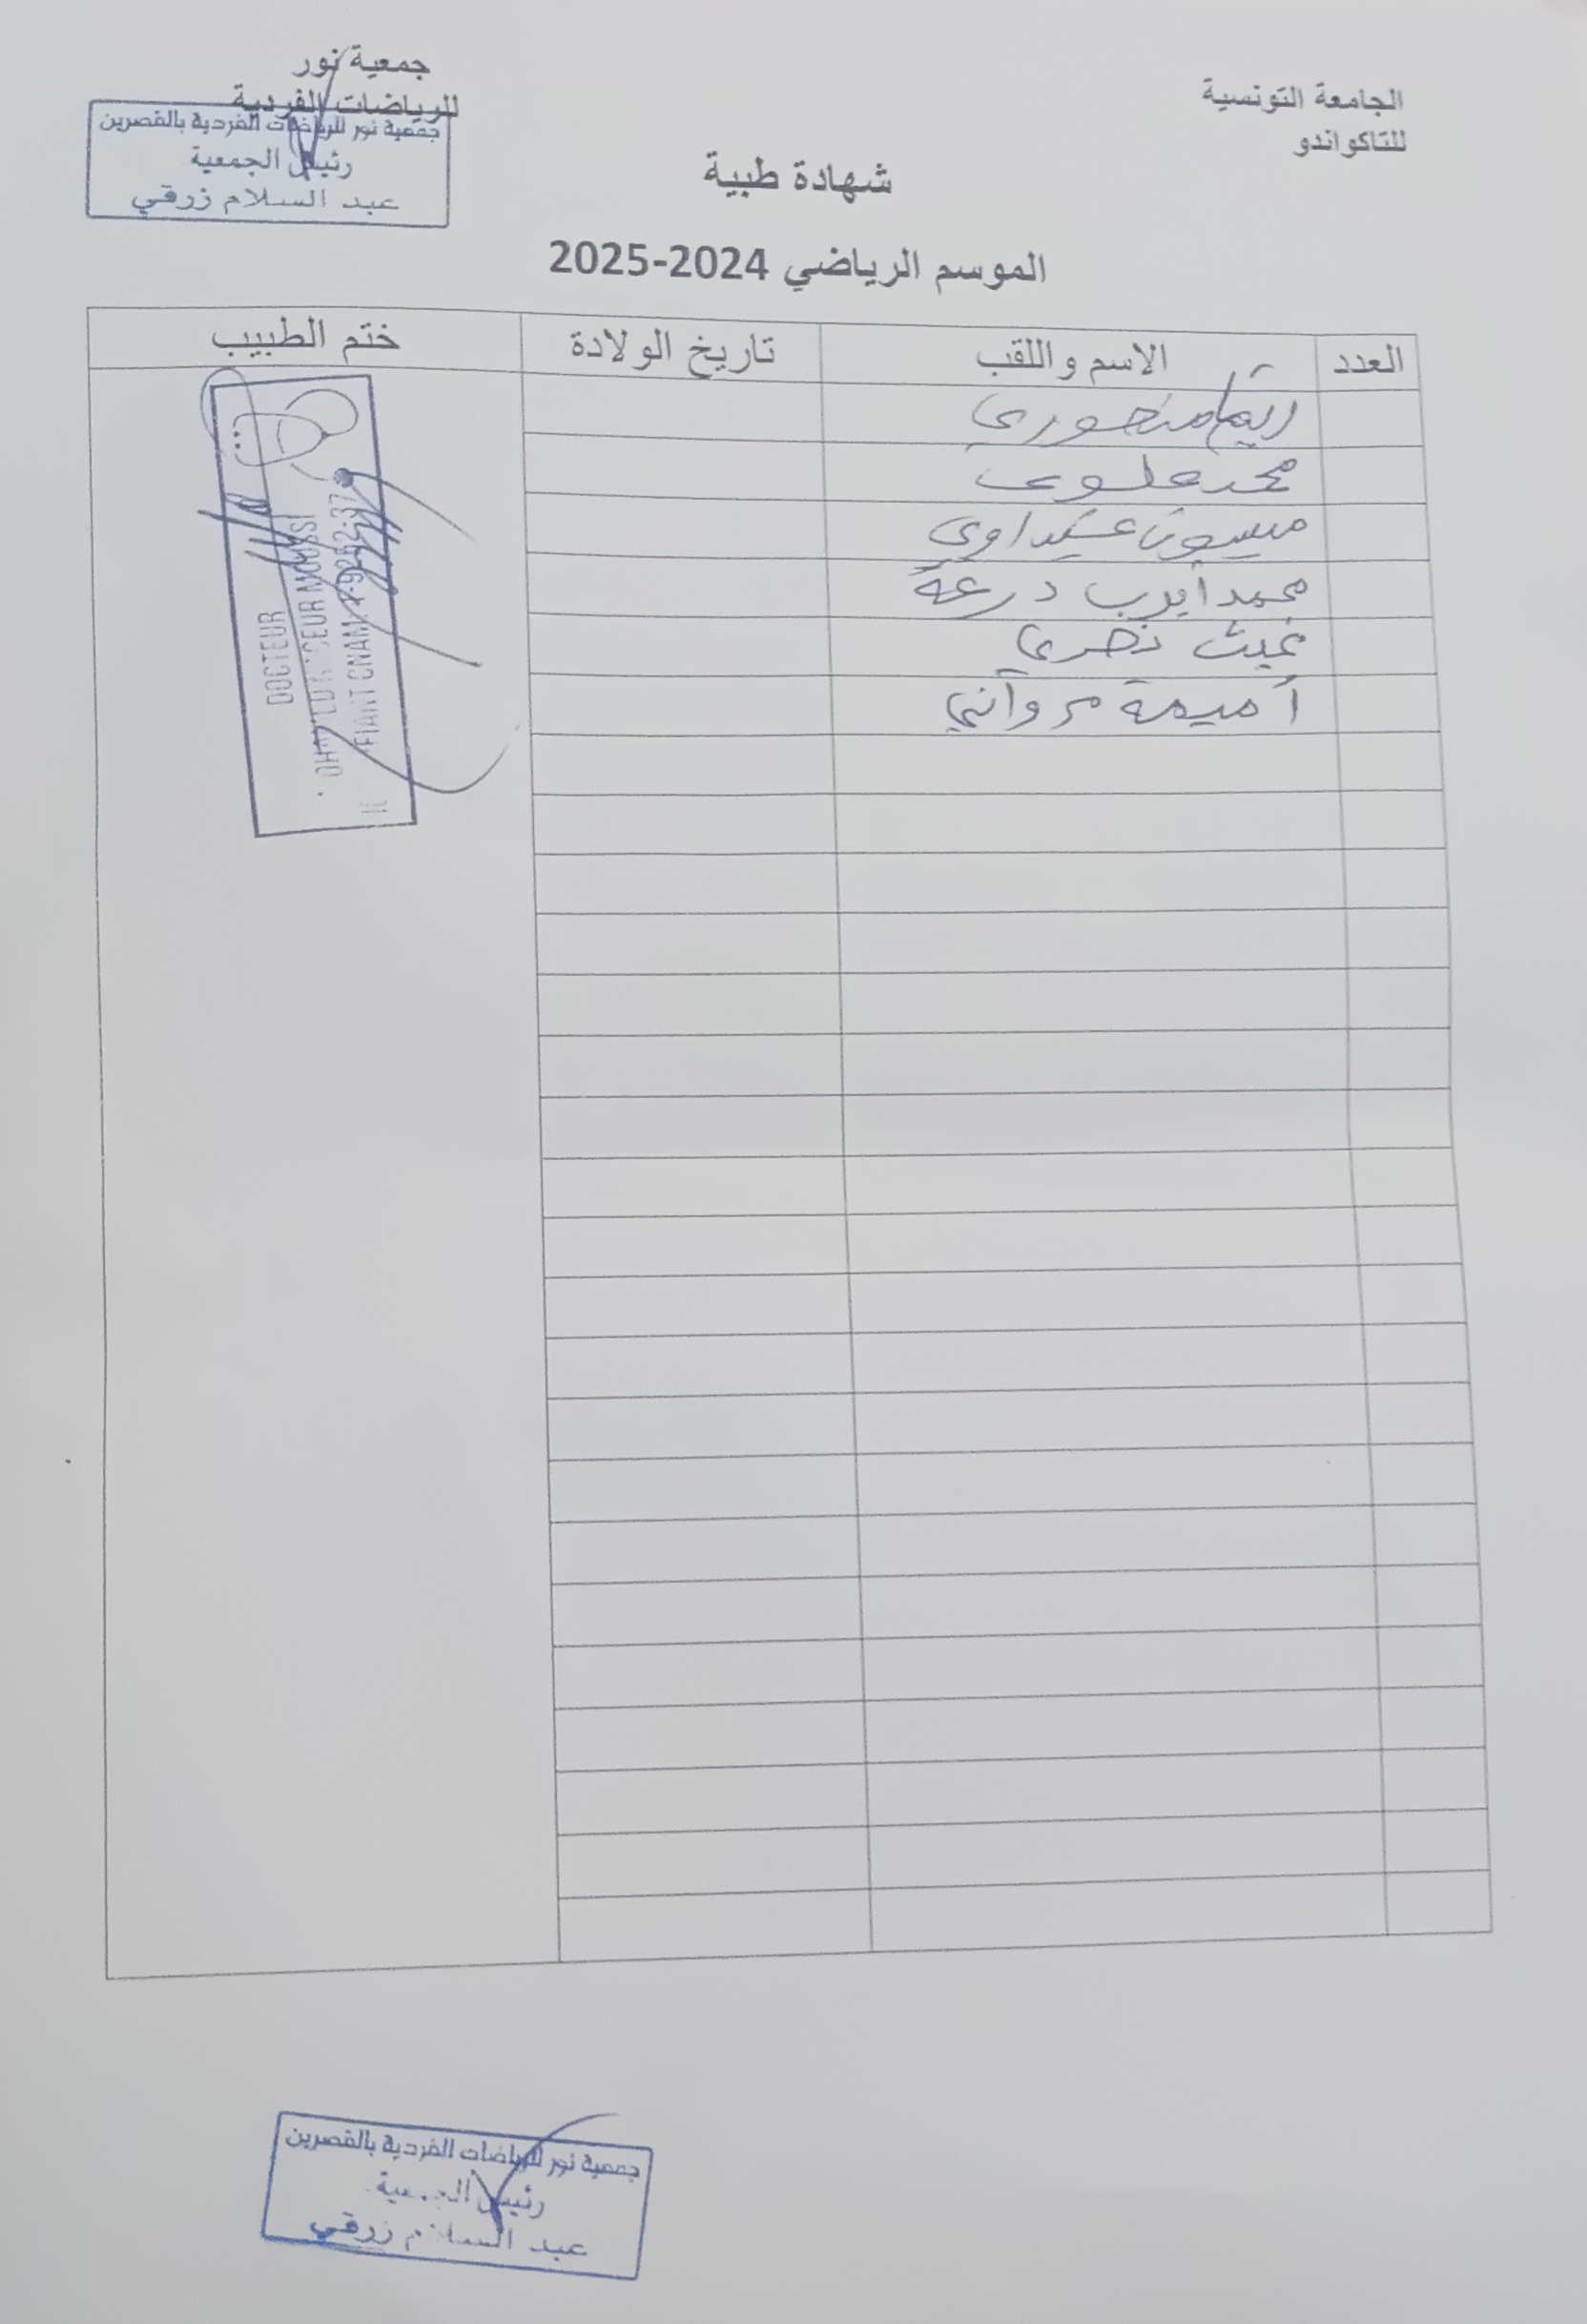 الجامعة التونسية
للتاكواندو
جمعية نور
للرياضات الفردية
جمعية نور للرياضات الفردية بالقصرين
رئيس الجمعية
عبد السلام زرقي
شهادة طبية
الموسم الرياضي 2024-2025
العدد الاسم واللقب تاريخ الولادة ختم الطبيب
ريم منصوري
محمد علوي
ميسون عيداوي
محمد أيوب درعة
غيث نصري
أميمة مرواني
DOCTEUR
MOUSSI
CNAM
جمعية نور للرياضات الفردية بالقصرين
رئيس الجمعية
عبد السلام زرقي